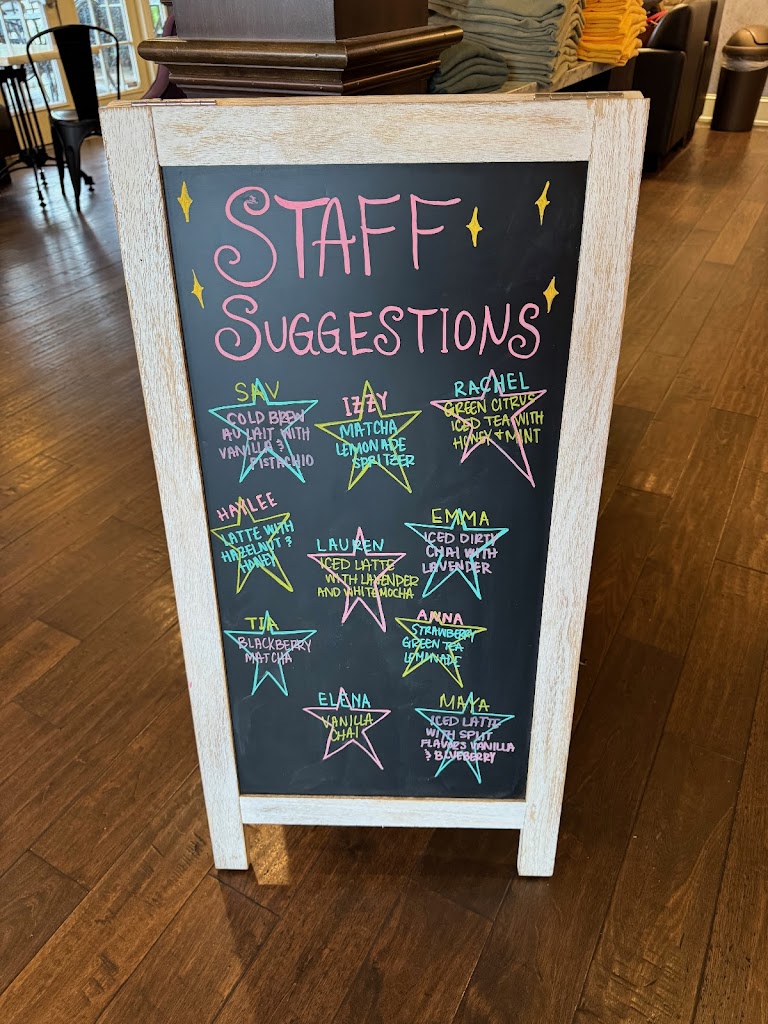 STAFF
SUGGESTIONS
SAV
COLD BREW
AU LAIT WITH
VANILLA &
PISTACHIO
IZZY
MATCHA
LEMONADE
SPRITZER
RACHEL
GREEN CITRUS
ICED TEA WITH
HONEY + MINT
HAYLEE
LATTE WITH
HAZELNUT &
HONEY
LAUREN
ICED LATTE
WITH LAVENDER
AND WHITE MOCHA
EMMA
ICED DIRTY
CHAI WITH
LAVENDER
TIA
BLACKBERRY
MATCHA
ANNA
STRAWBERRY
GREEN TEA
LEMONADE
ELENA
VANILLA
CHAI
MAYA
ICED LATTE
WITH SPLIT
FLAVORS VANILLA
& BLUEBERRY